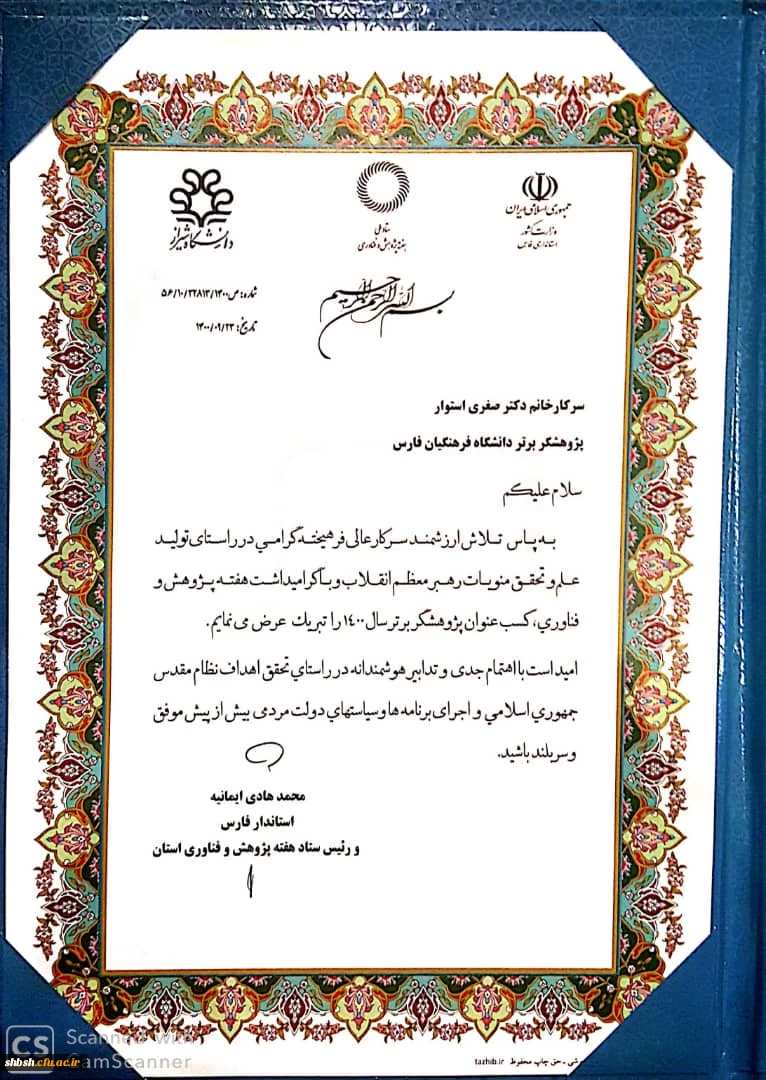 جمهوری اسلامی ایران
وزارت کشور
استانداری فارس
ستاد ملی
هفته پژوهش و فناوری
دانشگاه شیراز
بسم الله الرحمن الرحیم
شماره: ص/۱۴۰۰/۵۶/۱۰/۲۲۸۱۳
تاریخ: ۱۴۰۰/۰۹/۲۳
سرکارخانم دکتر صغری استوار
پژوهشگر برتر دانشگاه فرهنگیان فارس
سلام علیکم
به پاس تلاش ارزشمند سرکارعالی فرهیخته گرامي در راستای تولید
علم و تحقق منویات رهبر معظم انقلاب و با گرامیداشت هفته پژوهش و
فناوري، کسب عنوان پژوهشگر برتر سال ۱۴۰۰ را تبریك عرض می نمایم.
امید است با اهتمام جدی و تدابیر هوشمندانه در راستاي تحقق اهداف نظام مقدس
جمهوري اسلامي و اجرای برنامه ها و سیاستهاي دولت مردمی بیش از پیش موفق
و سربلند باشید.
محمد هادی ایمانیه
استاندار فارس
و رئیس ستاد هفته پژوهش و فناوری استان
CS Scanned with
CamScanner
shbsh.cfu.ac.ir
حق چاپ محفوظ tazhib.ir